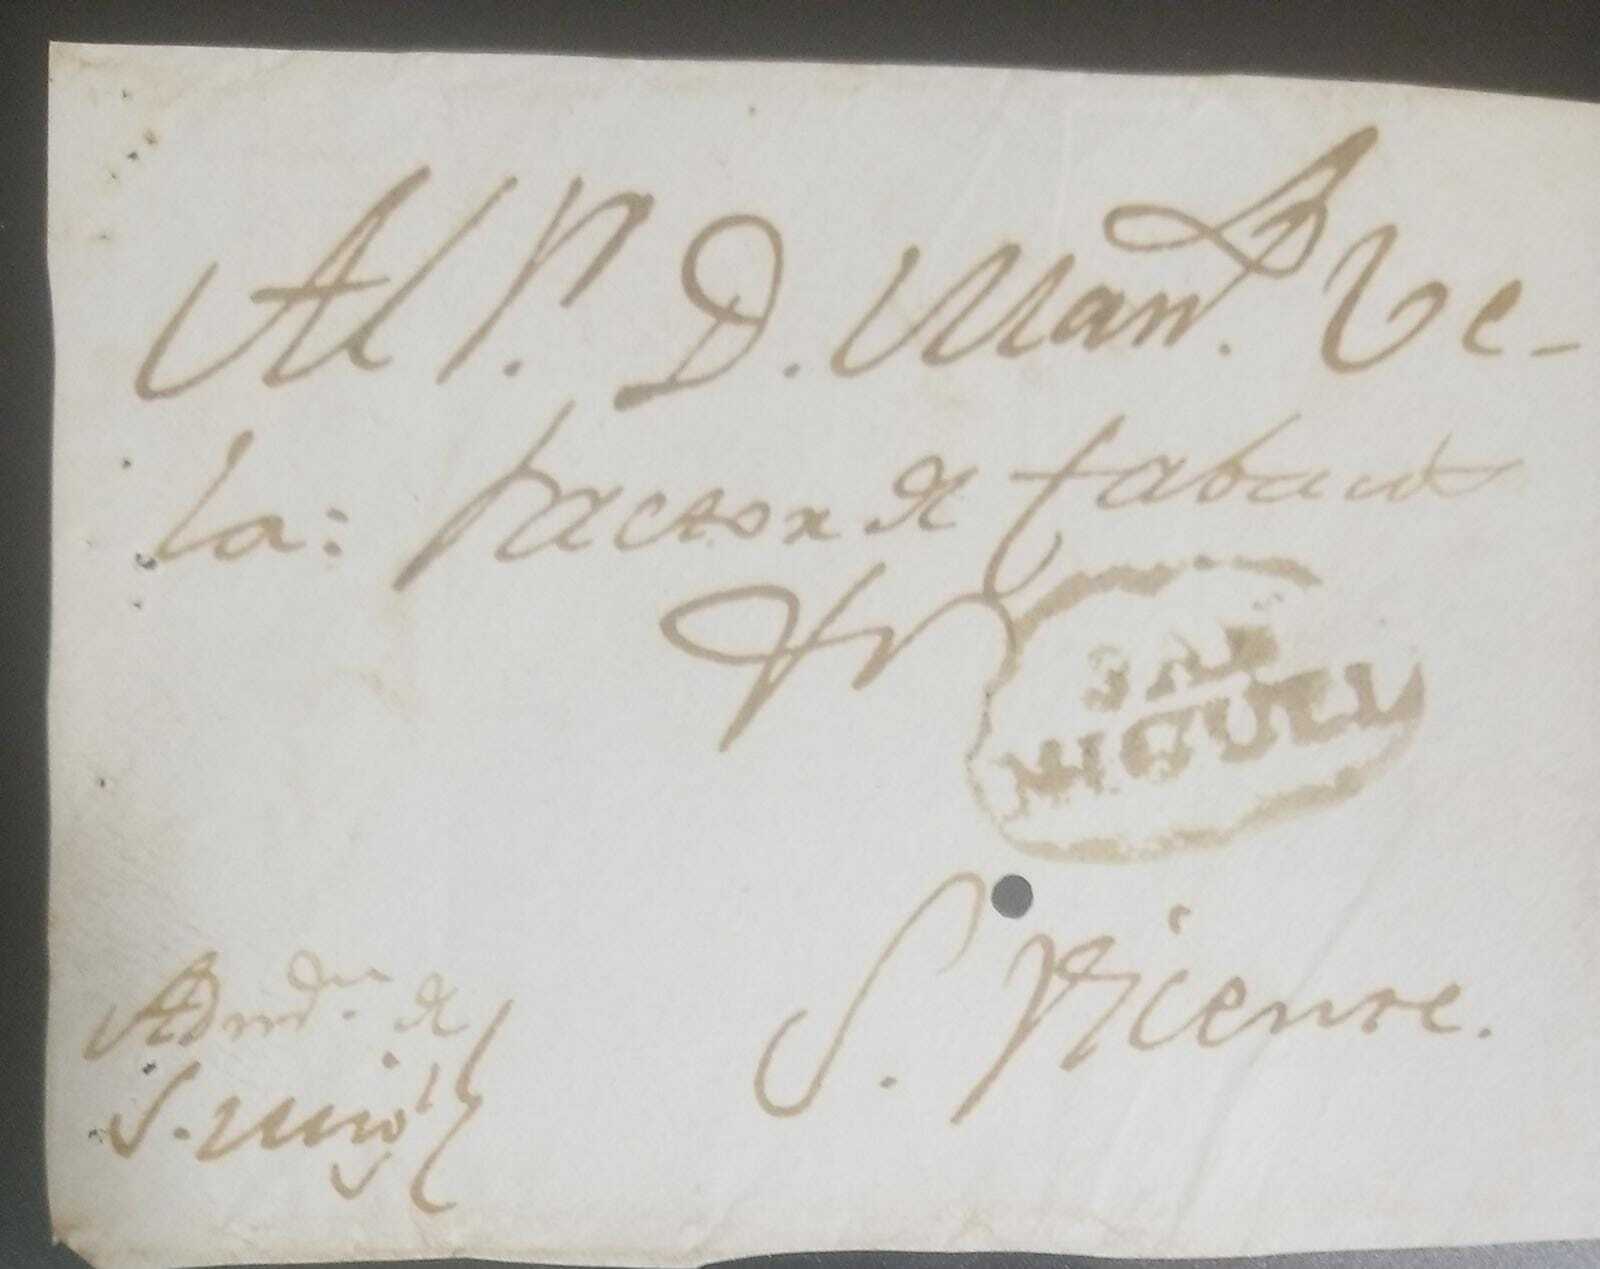 Al Sr. D. Manl. Ve-
la: Factor de tabacos
en
SAN
MIGUEL
S. Vicente.
Admon. de
S. Migl